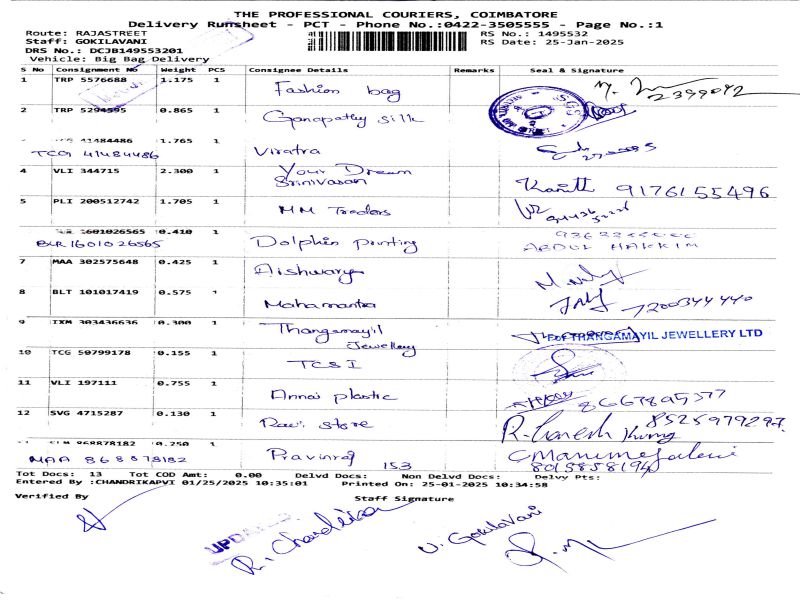 THE PROFESSIONAL COURIERS, COIMBATORE
Delivery Runsheet - PCT - Phone No.:0422-3505555 - Page No.:1
Route: RAJASTREET RS No.: 1495532
Staff: GOKILAVANI RS Date: 25-Jan-2025
DRS No.: DCJB149553201
Vehicle: Big Bag Delivery
S No Consignment No Weight PCS Consignee Details Remarks Seal & Signature
1 TRP 5576688 1.175 1 Fashion bag
2 TRP 5294595 0.865 1 Ganapathy silk
41484486 1.765 1 Viratra
TCG 41484486
4 VLI 344715 2.300 1 Your Dream Srinivasan 9176155496
5 PLI 200512742 1.705 1 MM Traders
1601026565 0.410 1 Dolphin printing
BLR 1601026565 ABDUL HAKKIM
7 MAA 302575648 0.425 1 Aishwarya
8 BLT 101017419 0.575 1 Mahamantra 7200344440
9 IXM 303436636 0.300 1 Thangamayil Jewellery For THANGAMAYIL JEWELLERY LTD
10 TCG 50799178 0.155 1 TCSI
11 VLI 197111 0.755 1 Annai plastic 8667895377
12 SVG 4715287 0.130 1 Ravi store R. Ganesh 8525979297
868878182 0.250 1 Pravinraj 153
MAA 868878182 8015858194
Tot Docs: 13 Tot COD Amt: 0.00 Delvd Docs: Non Delvd Docs: Delvy Pts:
Entered By :CHANDRIKAPVI 01/25/2025 10:35:01 Printed On: 25-01-2025 10:34:58
Verified By Staff Signature
R. Chandrika
V. Gokilavani